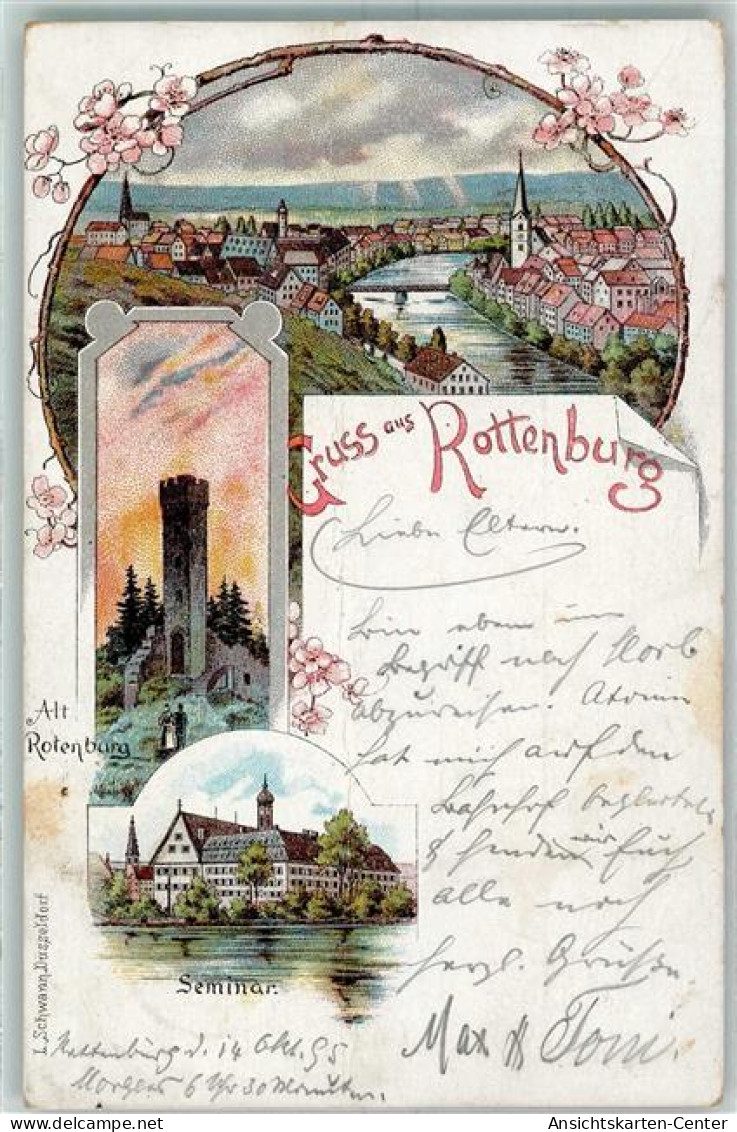 Gruss aus Rottenburg
Liebe Eltern.
bin eben im
Begriff nach Horb
abzureisen.
hat mich auf den
Bahnhof begleitet
& senden wir Euch
alle noch
herzl. Grüße
Max & Toni.
Alt
Rotenburg
Seminar.
L. Schwann, Düsseldorf
Rottenburg d. 14 Okt. 95
Morgens 6 Uhr 30 Minuten.
Ansichtskarten-Center